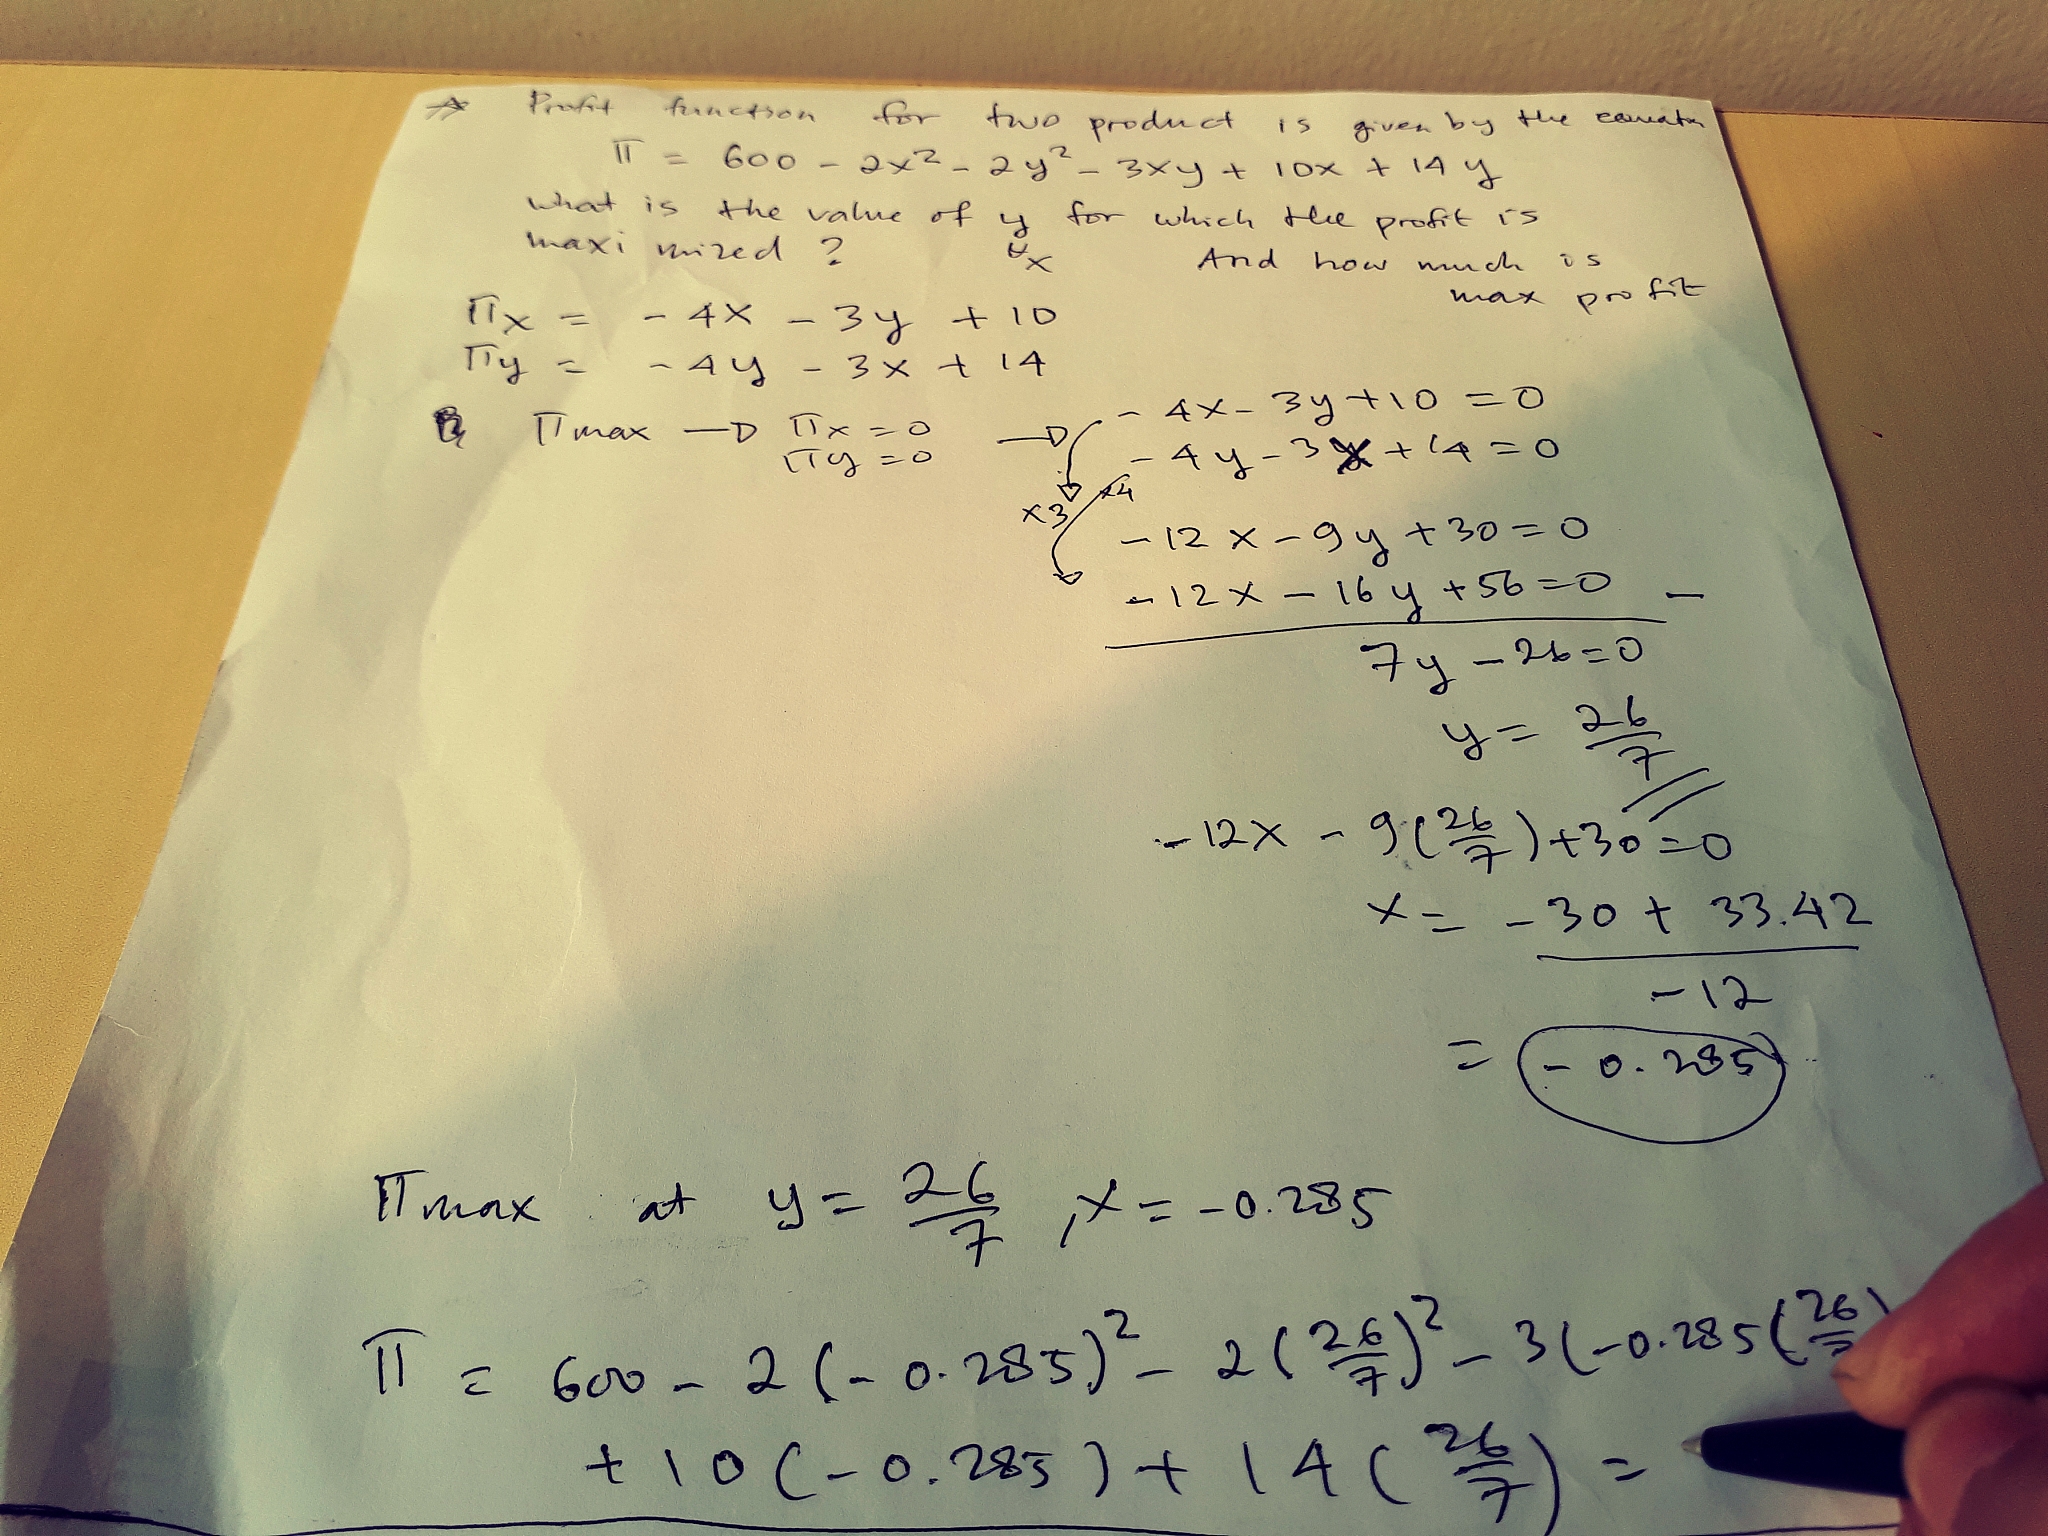 * Profit function for two product is given by the equatn
π = 600 - 2x² - 2y² - 3xy + 10x + 14y
what is the value of y for which the profit is
maximized ? & x And how much is
max profit
πx = -4x - 3y + 10
πy = -4y - 3x + 14
πmax → πx = 0 → -4x - 3y + 10 = 0
πy = 0 -4y - 3x + 14 = 0
x3 x4
-12x - 9y + 30 = 0
-12x - 16y + 56 = 0 -
7y - 26 = 0
y = 26/7
-12x - 9(26/7) + 30 = 0
x = -30 + 33.42
-12
= -0.285
πmax at y = 26/7, x = -0.285
π = 600 - 2(-0.285)² - 2(26/7)² - 3(-0.285(26/7)
+ 10(-0.285) + 14(26/7) =